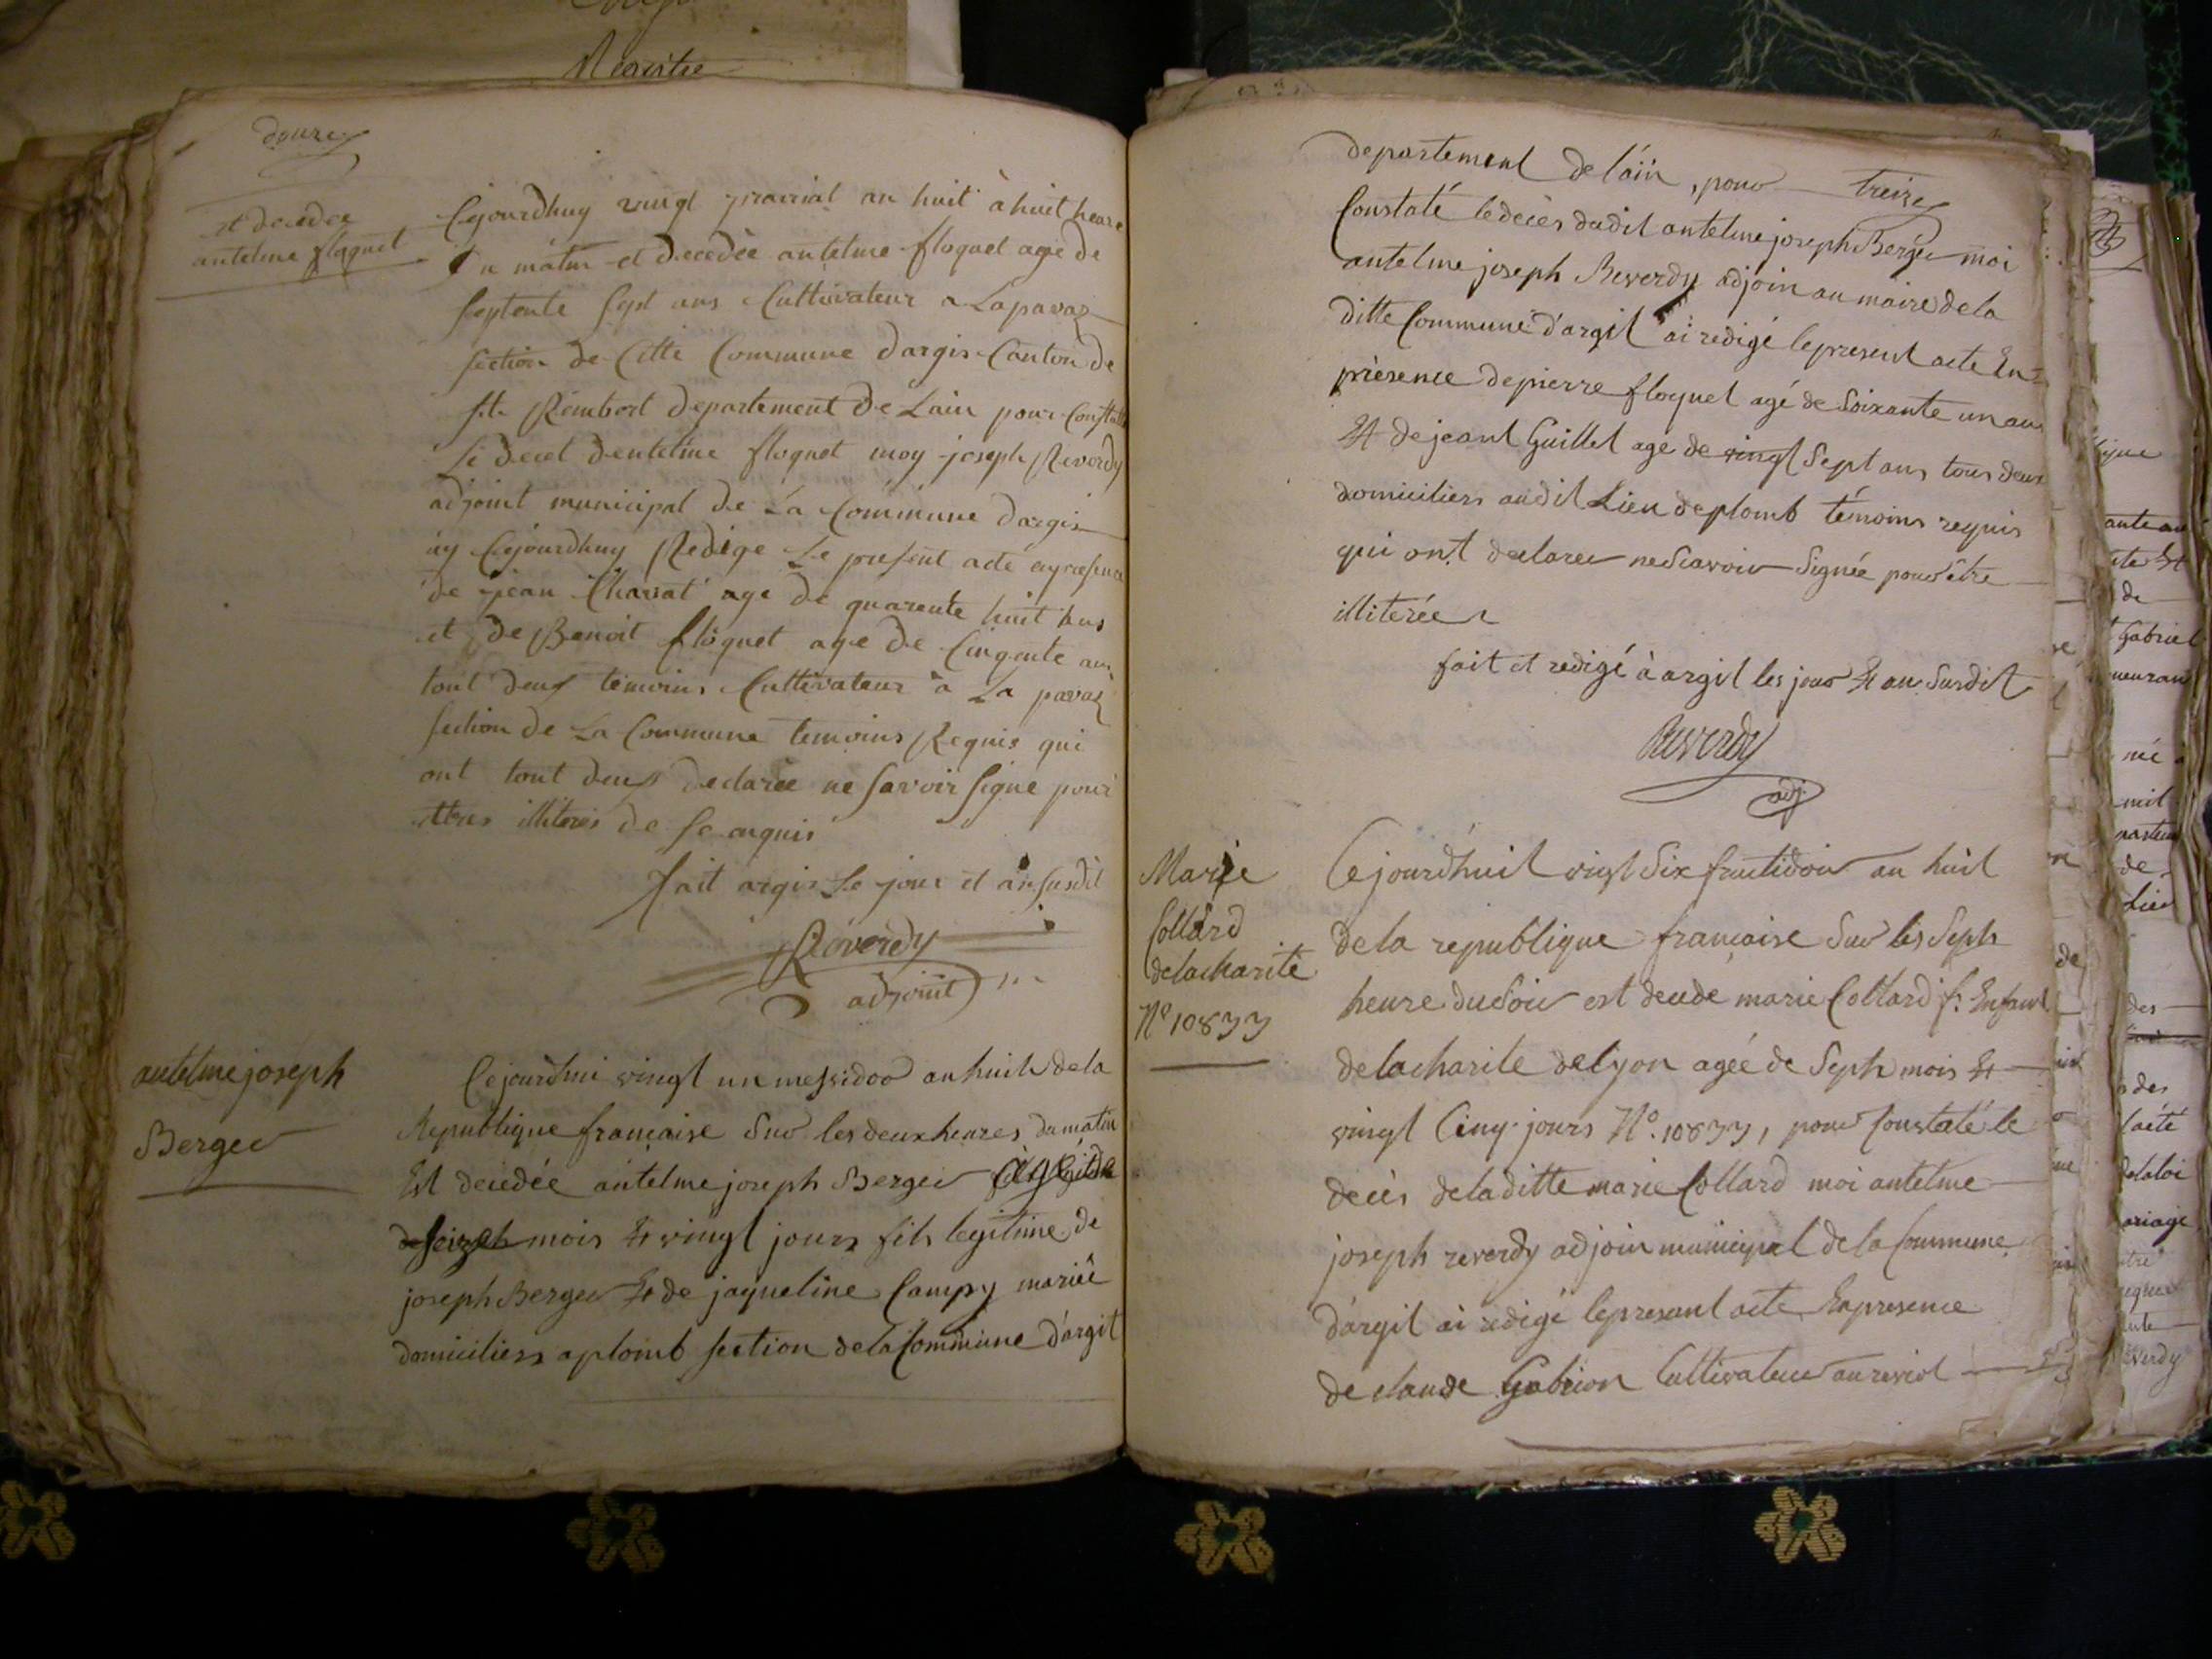 Registre
douze
et decedee
antelme floquet
Cejourdhuy vingt prairial an huit à huit heure
Du matin et decedèe antelme floquet age de
septente sept ans Cultivateur a Lapavaz
section de Cette Commune dargis Canton de
st Rembert departement de Lain pour Constate
Le decet dentelme floquet moy joseph Reverdy
adjoint municipal de La Commune dargis
ay Cejourdhuy Redige Le present acte en presence
de jean Charvat age de quarente huit ans
et de Benoit floquet age de Cinqente ans
tout deux temoins Cultivateur a La pavaz
section de La Commune temoins Requis qui
ont tout deux declarée ne savoir signe pour
ettres illiteres de Se enquis
fait argis Le jour et an susdit
Reverdy
adjoint
antelme joseph
Berger
Cejourdhui vingt un messidor an huit de la
Republique française Sur les deux heures du matin
Est decedée antelme joseph Berger
mois Et vingt jours fils legitime de
joseph Berger Et de jaqueline Campy mariée
domiciliers a plomb section de la Commune d'argit
departement de l'ain, pour
treize
Constaté le decès dudit antelme joseph Berger moi
antelme joseph Reverdy adjoin au maire de la
ditte Commune d'argit ai redigé le present acte En
présence de pierre floquet agé de Soixante un ans
Et de jeant Guillet age de vingt Sept ans tous deux
domiciliers audit Lieu de plomb témoins requis
qui ont declarer ne Scavoir Signée pour être
illiterée
fait et redigé à argit les jour Et an Susdit
Reverdy
adj
Marie
Collard
de la charite
N° 10833
Cejourd'huit vingt Six fructidor an huit
de la republique française Sur les Septs
heure du Soir est decede marie Collard f: Enfant
de la charite de Lyon agée de Septs mois Et
vingt Cinq jours N°. 10833, pour Constaté le
decès de la ditte marie Collard moi antelme
joseph reverdy adjoin municipal de la Commune
d'argit ai redigé le presant acte En presence
de claude Gabrion Cultivateur au reviol